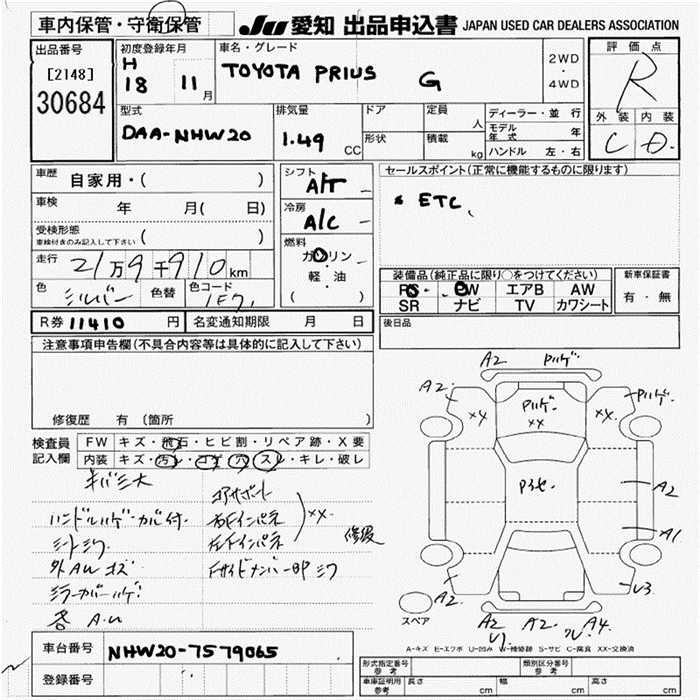 車内保管・守衛保管
JU 愛知 出品申込書 JAPAN USED CAR DEALERS ASSOCIATION
出品番号
[2148]
30684
初度登録年月
H
18 11月
車名・グレード
TOYOTA PRIUS G
2WD
・
4WD
評価点
R
外装 内装
C D.
型式
DAA-NHW20
排気量
1.49
CC
ドア
形状
定員
人
積載
kg
ディーラー・並行
モデル年式 年
ハンドル 左・右
車歴 自家用・( )
車検 年 月( 日)
受検形態
車検付きのみ記入して下さい ( )
走行 21万9千910km
色 シルバー 色替 色コード 1F7
シフト
A/T
冷房
A/C
燃料
ガソリン
・
軽・油
( )
セールスポイント(正常に機能するものに限ります)
* ETC、
装備品(純正品に限り○をつけてください)
PS PW エアB AW
SR ナビ TV カワシート
新車保証書
有・無
後日品
R券 11410 円 名変通知期限 月 日
注意事項申告欄(不具合内容等は具体的に記入して下さい)
修復歴 有 (箇所 )
検査員記入欄
FW キズ・飛石・ヒビ割・リペア跡・X要
内装 キズ・汚れ・コゲ・穴・スレ・キレ・破レ
キバミ大
ハンドルハゲ・カバー付.
シートシワ
外AWキズ
ミラーカバーハゲ
各 A.U
コアサポート
右Fインパネ
左Fインパネ
XX.
修復
FサイドメンバーBP シワ
A2 Pハゲ
A2. Pハゲ.
XX Pハゲ XX XX.
A2
A1
U3
A2.
A2 A2 A4.
スペア
A-キズ E-エクボ U-凹み W-補修跡 S-サビ C-腐食 XX-交換済
車台番号 NHW20-7579065
登録番号
形式指定番号
参考
類別区分番号
参考
車庫証明用
参考
長さ cm 幅 cm 高さ cm